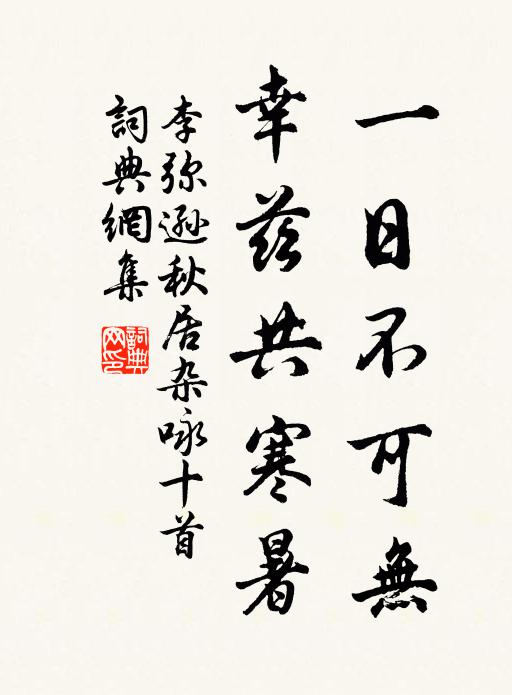 一日不可無
幸茲共寒暑
李弥遜秋居杂咏十首
詞典網集
詞典
网印